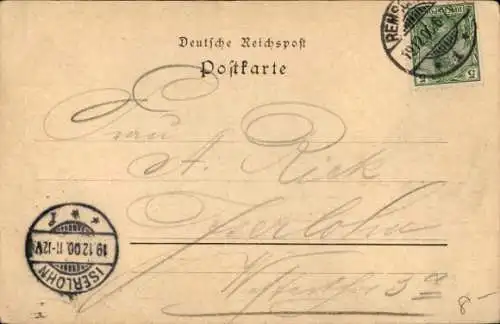 Deutsche Reichspost
Postkarte
REMS
19.12.00.
5
Frau
A. Rick
Iserlohn
3 a
19.12.00. 11-12V.
ISERLOHN
8-